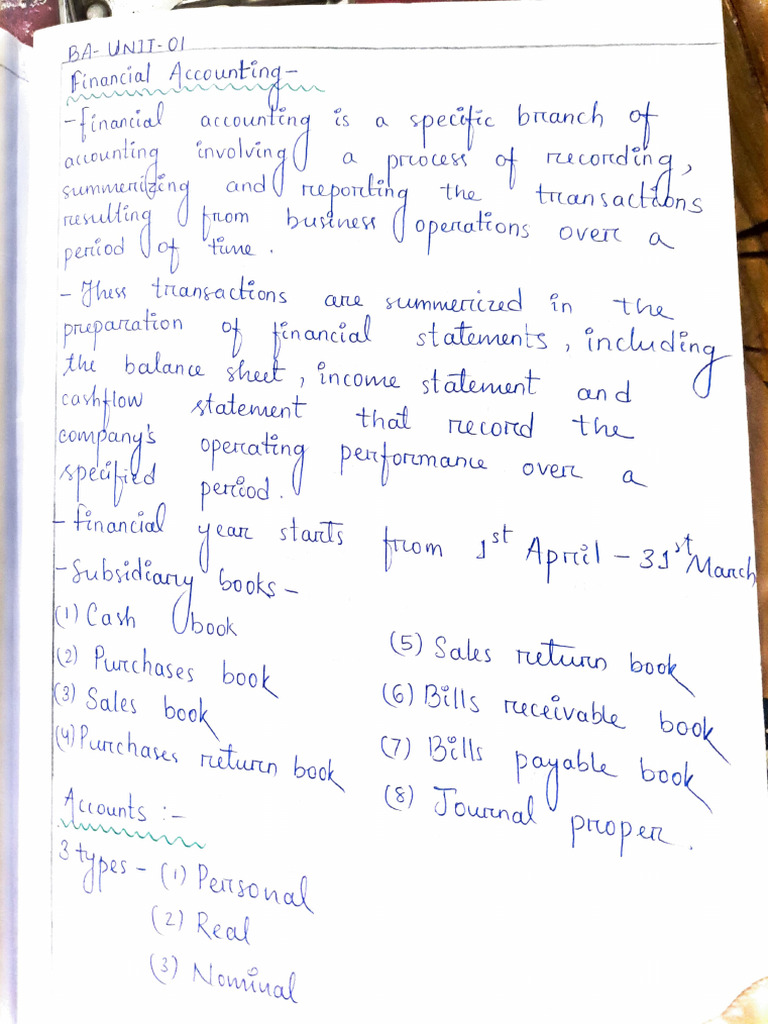 BA- UNIT-01
Financial Accounting-
-financial accounting is a specific branch of
accounting involving a process of recording,
summerizing and reporting the transactions
resulting from business operations over a
period of time.
- Thess transactions are summerized in the
preparation of financial statements, including
the balance sheet, income statement and
cashflow statement that record the
company's operating performance over a
specified period.
- financial year starts from 1st April - 31st March
- Subsidiary books -
(1) Cash book
(2) Purchases book
(3) Sales book
(4) Purchases return book
(5) Sales return book
(6) Bills receivable book
(7) Bills payable book
(8) Journal proper.
Accounts :-
3 types - (1) Personal
(2) Real
(3) Nominal